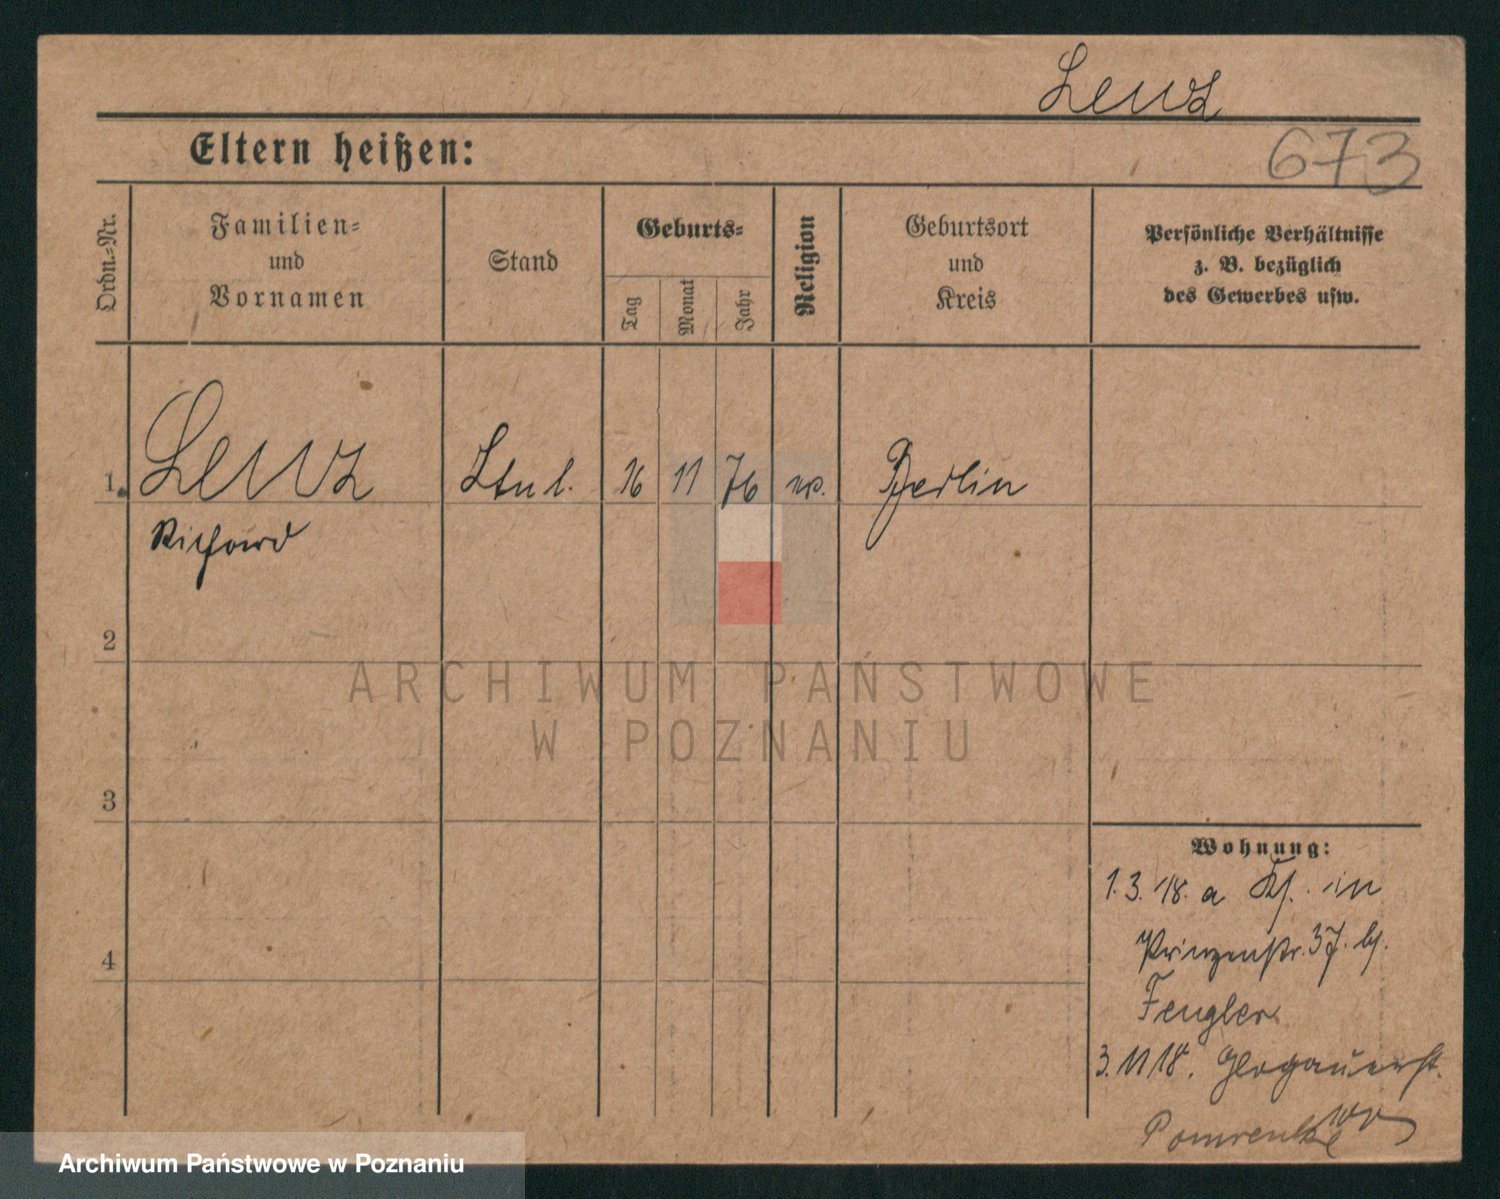 Lenz
673
Eltern heißen:
Ordn.-Nr.
Familien-
und
Vornamen
Stand
Geburts-
Tag
Monat
Jahr
Religion
Geburtsort
und
Kreis
Persönliche Verhältnisse
z. B. bezüglich
des Gewerbes usw.
1 Lenz 16 11 76 Berlin
Richard
2
3
4
Wohnung:
1.3.18. a in
Prinzenstr. 37. b.
Fengler
3.11 18. Glogauerst.
Pomrenke
ARCHIWUM PAŃSTWOWE
W POZNANIU
Archiwum Państwowe w Poznaniu